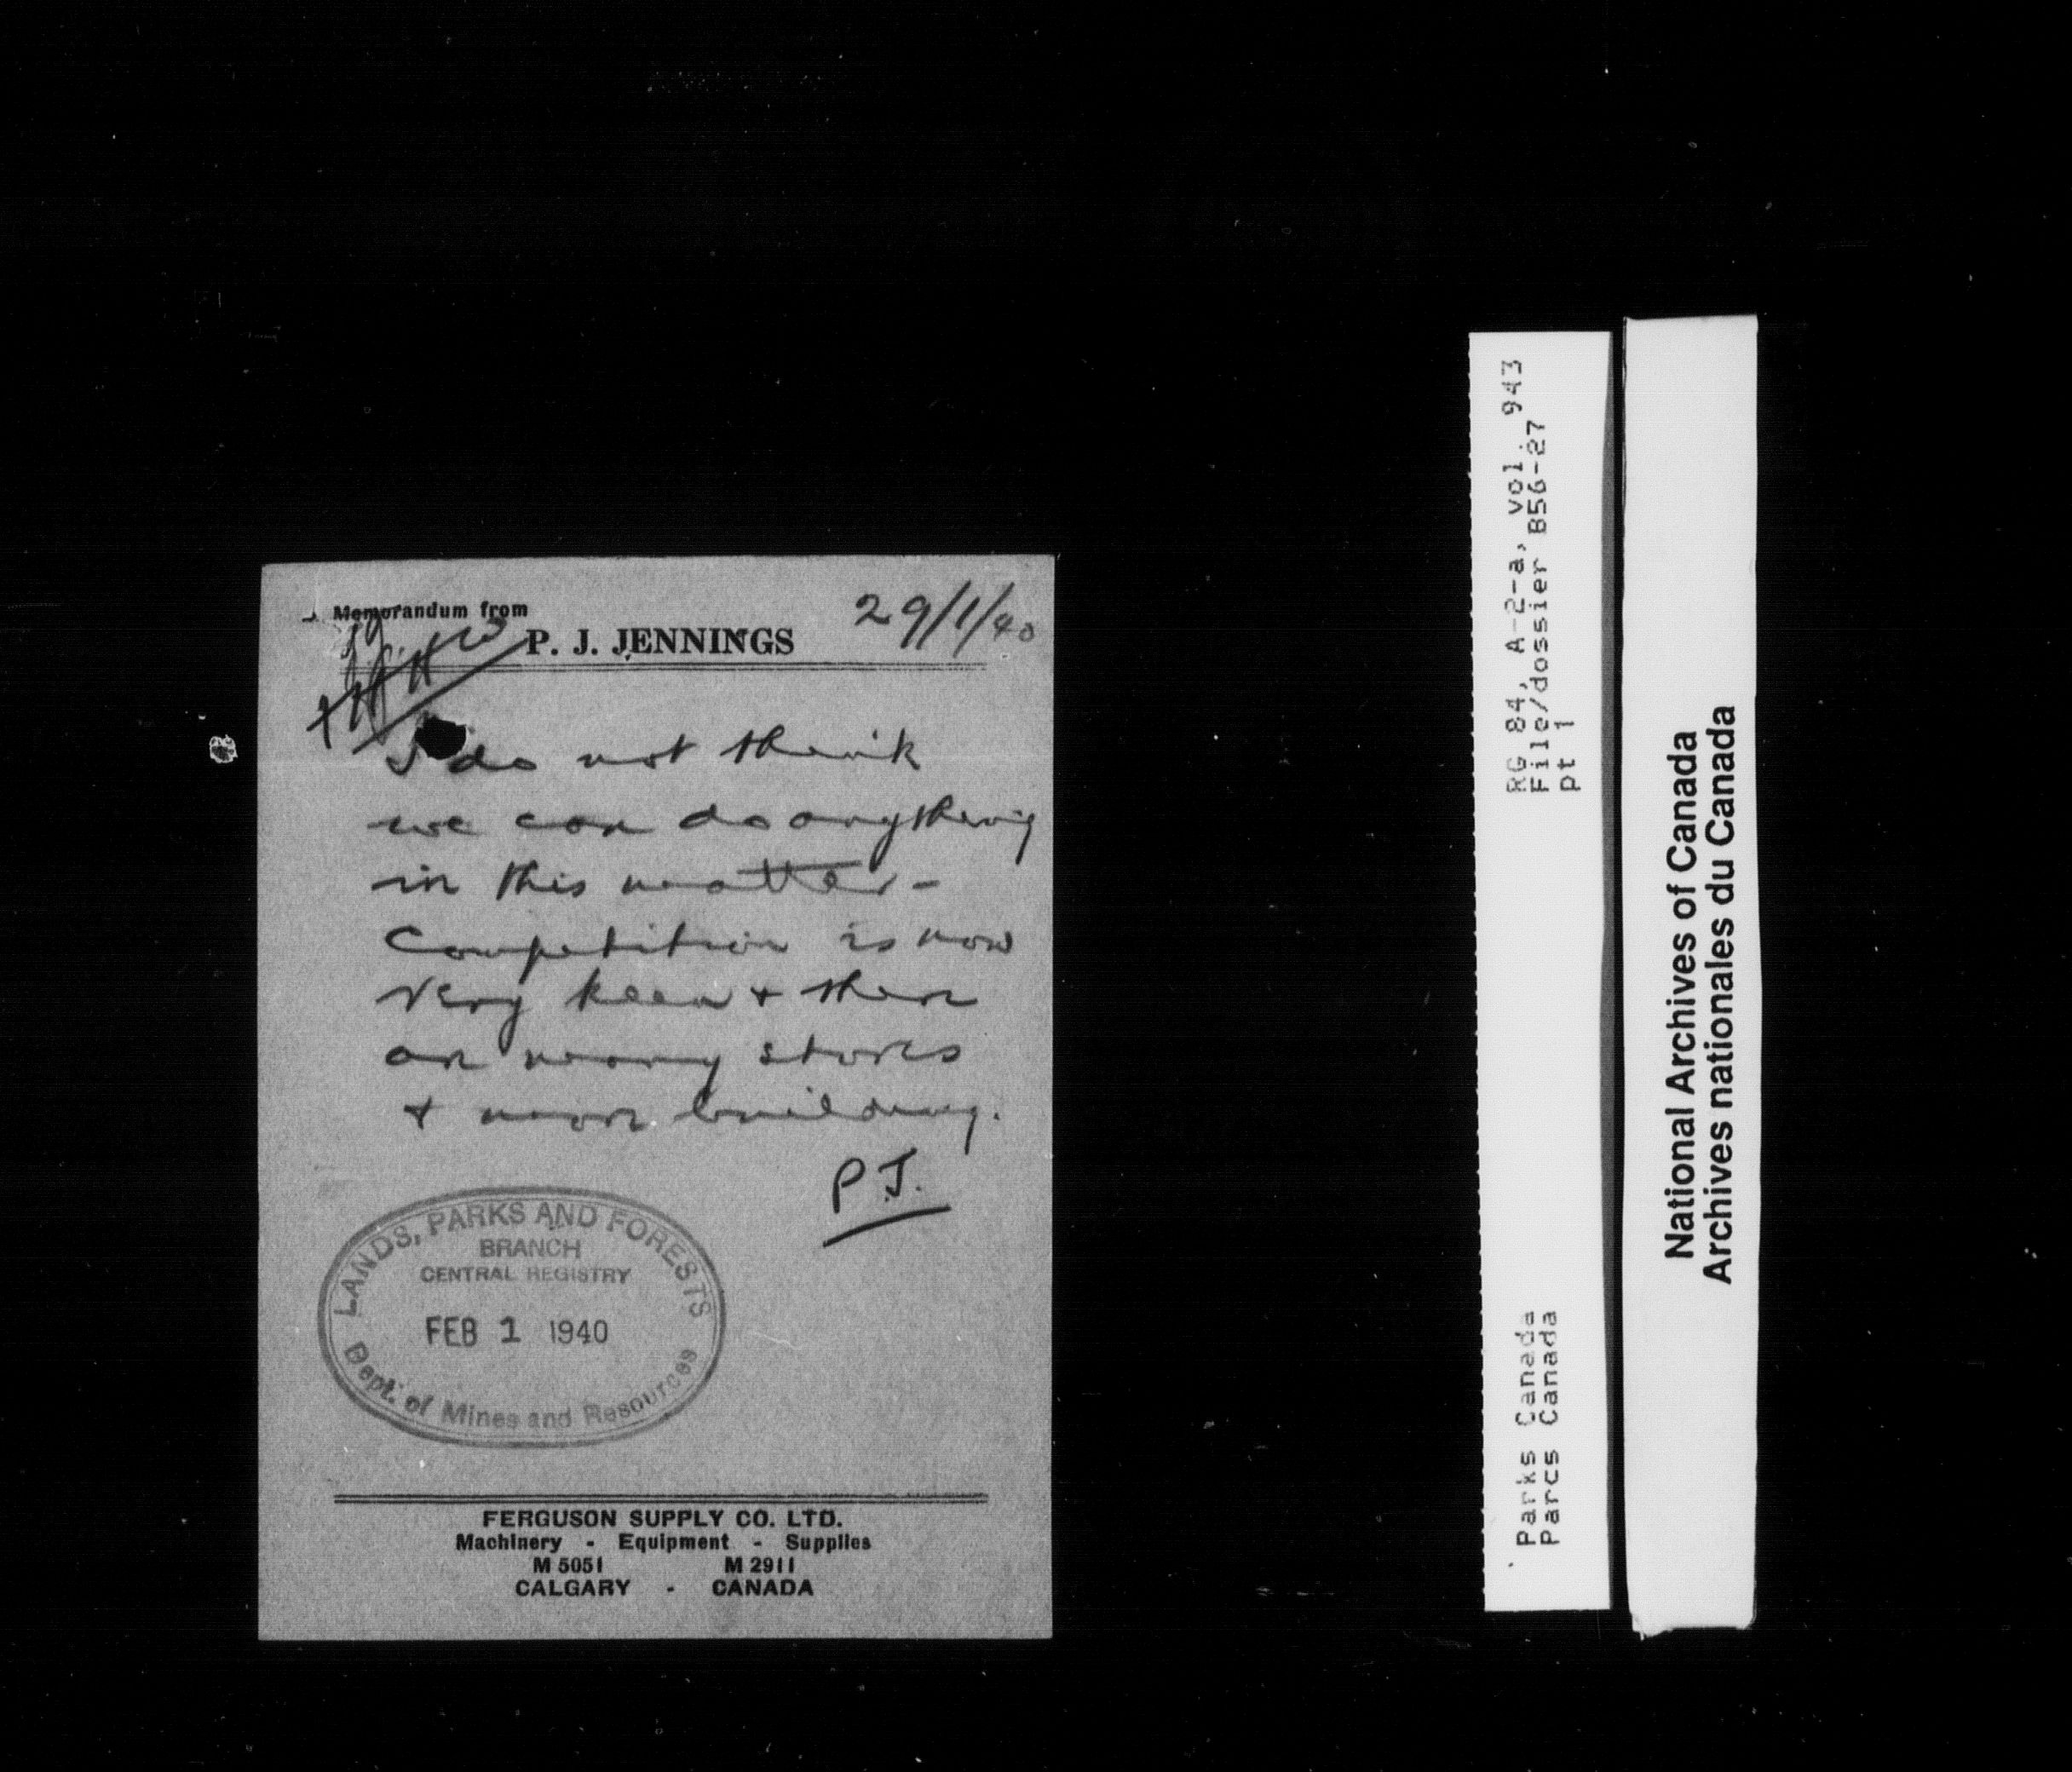 Memorandum from
P. J. JENNINGS
29/1/40
I do not think
we can do anything
in this matter -
Competition is now
very keen + there
are many stores
+ more building.
P J.
LANDS, PARKS AND FORESTS
BRANCH
CENTRAL REGISTRY
FEB 1 1940
Dept. of Mines and Resources
FERGUSON SUPPLY CO. LTD.
Machinery - Equipment - Supplies
M 5051 M 2911
CALGARY - CANADA
RG 84, A-2-a, vol. 943
File/dossier B56-27
pt 1
Parks Canada
Parcs Canada
National Archives of Canada
Archives nationales du Canada